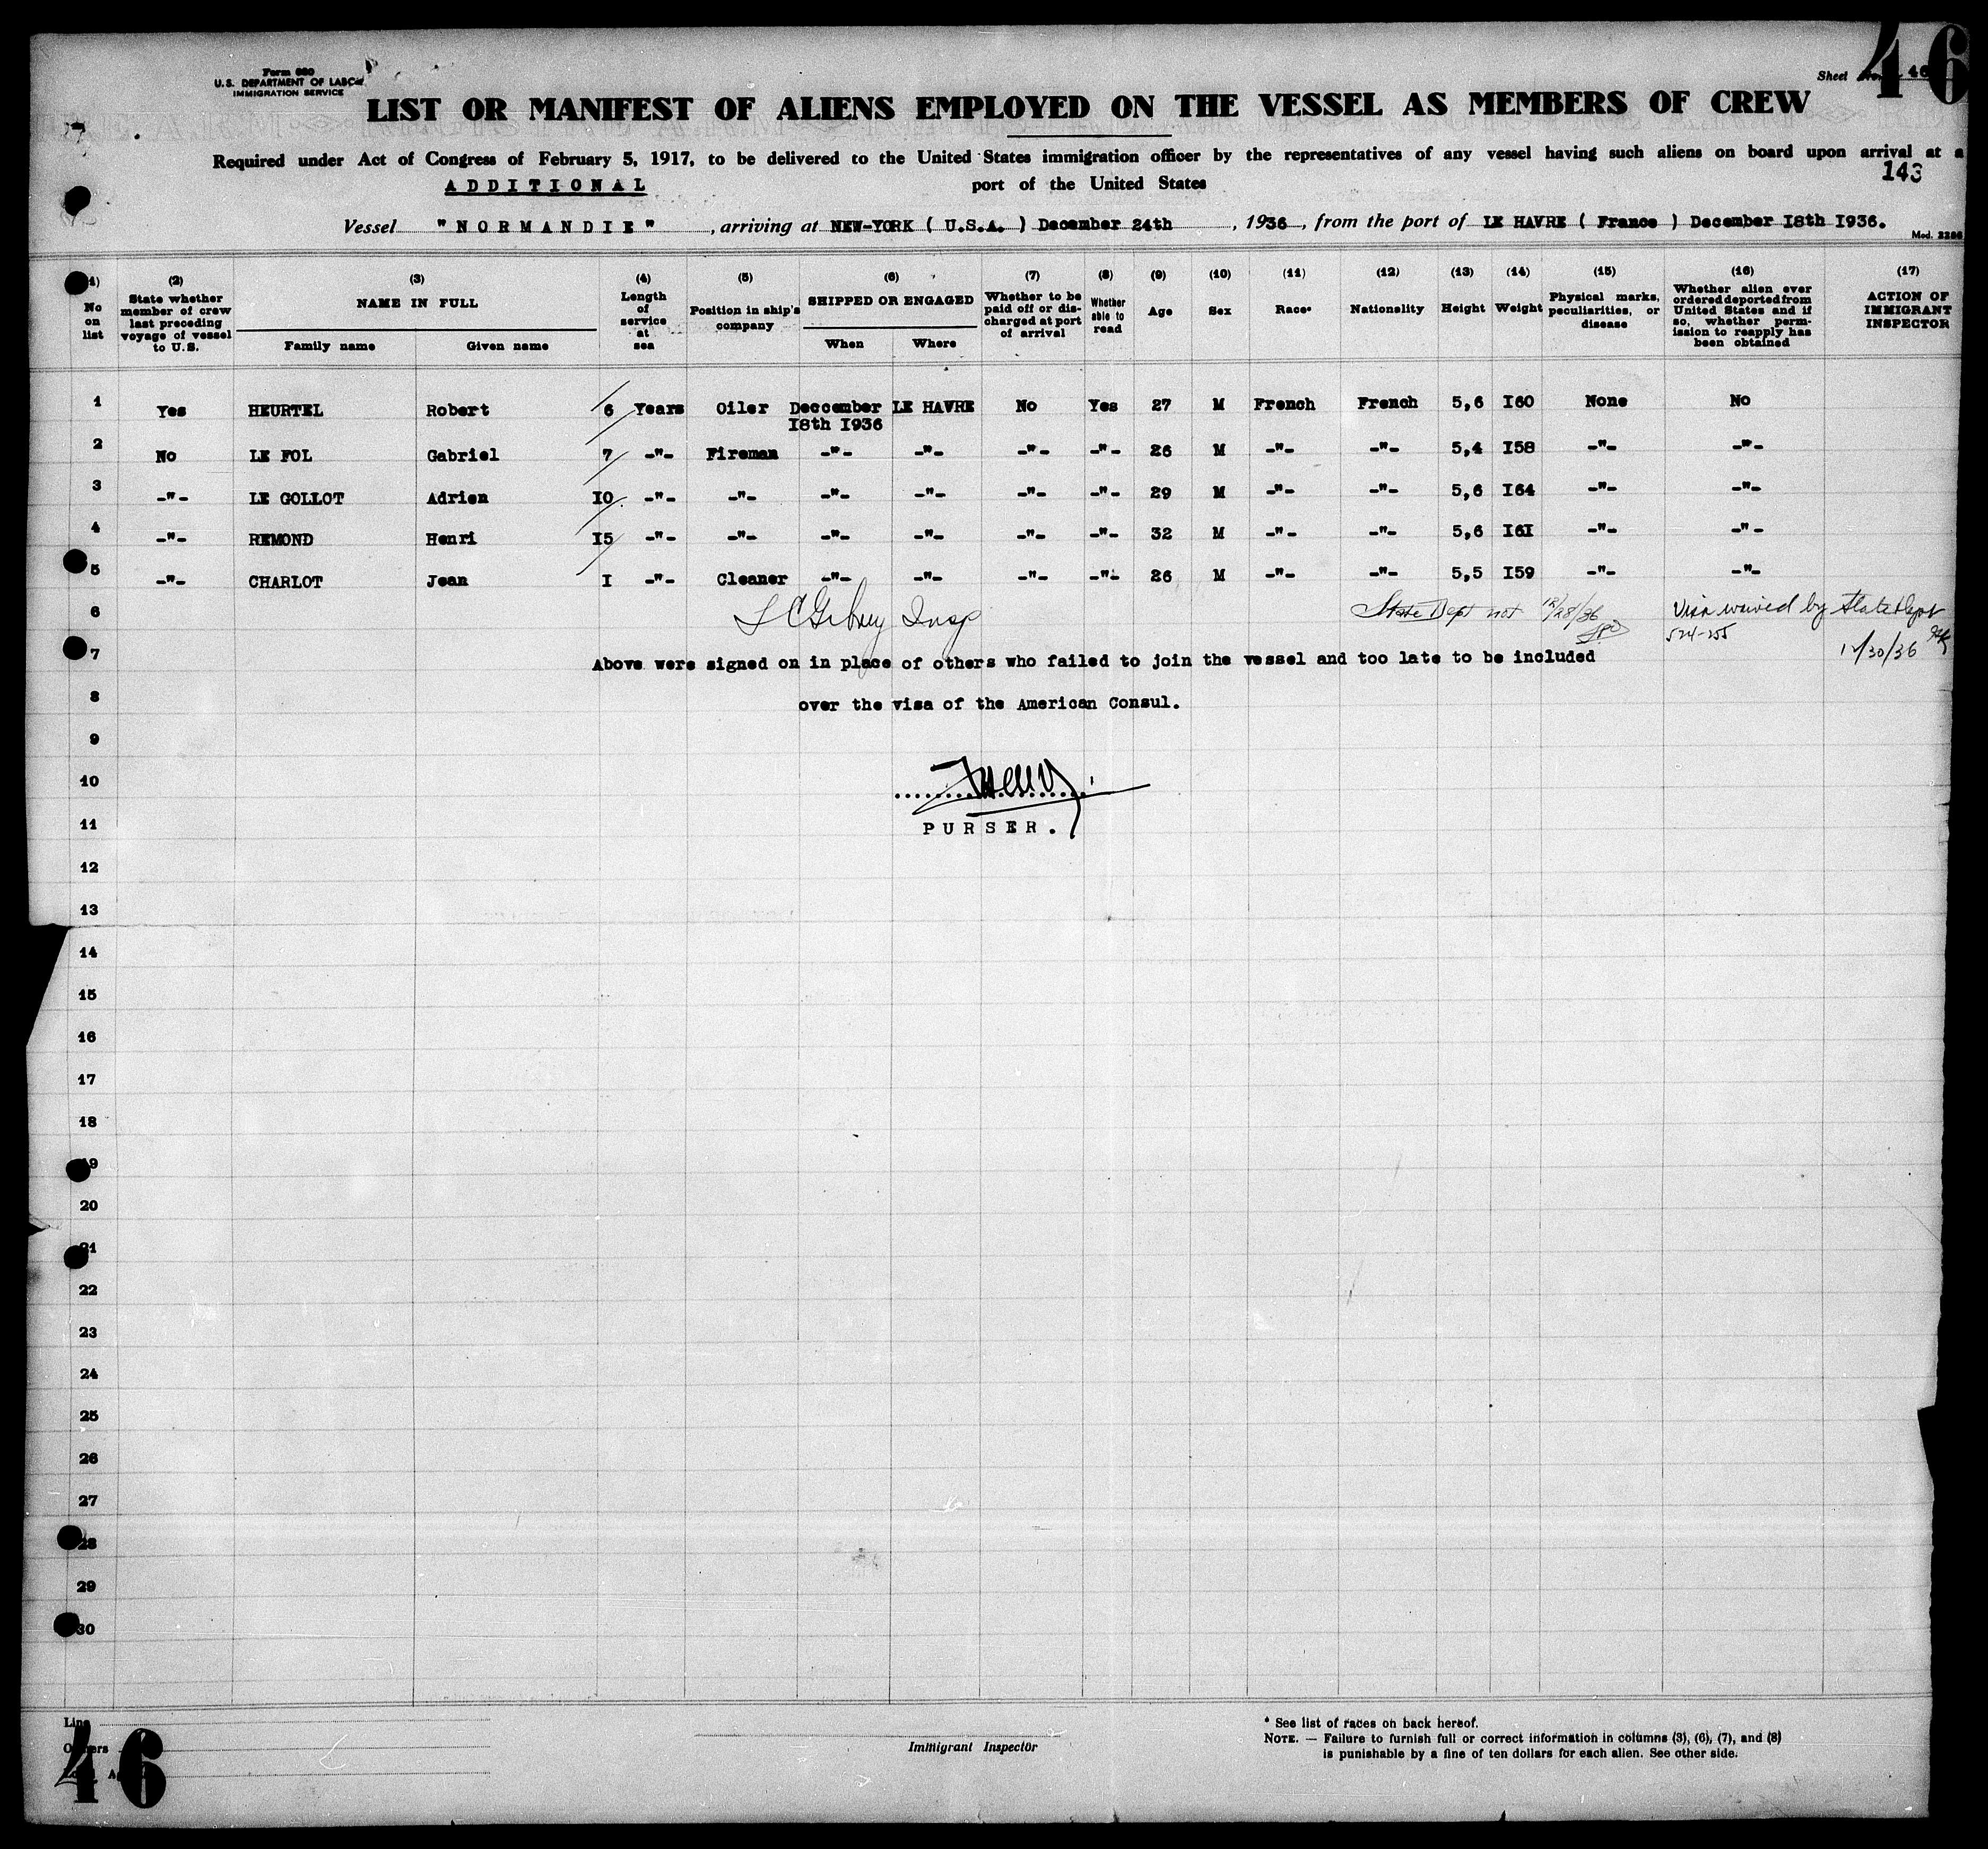 46
Form 680
U.S. DEPARTMENT OF LABOR
IMMIGRATION SERVICE
Sheet No. 46
LIST OR MANIFEST OF ALIENS EMPLOYED ON THE VESSEL AS MEMBERS OF CREW
Required under Act of Congress of February 5, 1917, to be delivered to the United States immigration officer by the representatives of any vessel having such aliens on board upon arrival at a
port of the United States
143
ADDITIONAL
Vessel "NORMANDIE", arriving at NEW-YORK ( U.S.A. ) December 24th, 1936, from the port of LE HAVRE ( France ) December I8th I936.
Mod. 2286
(1) (2) (3) (4) (5) (6) (7) (8) (9) (10) (11) (12) (13) (14) (15) (16) (17)
No on list
State whether member of crew last preceding voyage of vessel to U.S.
NAME IN FULL
Family name Given name
Length of service at sea
Position in ship's company
SHIPPED OR ENGAGED
When Where
Whether to be paid off or discharged at port of arrival
Whether able to read
Age
Sex
Race*
Nationality
Height
Weight
Physical marks, peculiarities, or disease
Whether alien ever ordered deported from United States and if so, whether permission to reapply has been obtained
ACTION OF IMMIGRANT INSPECTOR
1 Yes HEURTEL Robert 6 Years Oiler Deccember LE HAVRE No Yes 27 M French French 5,6 I60 None No
I8th I936
2 No LE FOL Gabriel 7 -"- Fireman -"- -"- -"- -"- 26 M -"- -"- 5,4 I58 -"- -"-
3 -"- LE GOLLOT Adrien IO -"- -"- -"- -"- -"- -"- 29 M -"- -"- 5,6 I64 -"- -"-
4 -"- REMOND Henri I5 -"- -"- -"- -"- -"- -"- 32 M -"- -"- 5,6 I6I -"- -"-
5 -"- CHARLOT Jean I -"- Cleaner -"- -"- -"- -"- 26 M -"- -"- 5,5 I59 -"- -"-
6 Insp State Dept not 12/28/36 Visa waived by State Dept
7 Above were signed on in place of others who failed to join the vessel and too late to be included
/30/36
8 over the visa of the American Consul.
9
10
11 PURSER.
12
13
14
15
16
17
18
19
20
21
22
23
24
25
26
27
28
29
30
Line
Owners
46
Immigrant Inspector
* See list of races on back hereof.
NOTE. — Failure to furnish full or correct information in columns (3), (6), (7), and (8)
is punishable by a fine of ten dollars for each alien. See other side.